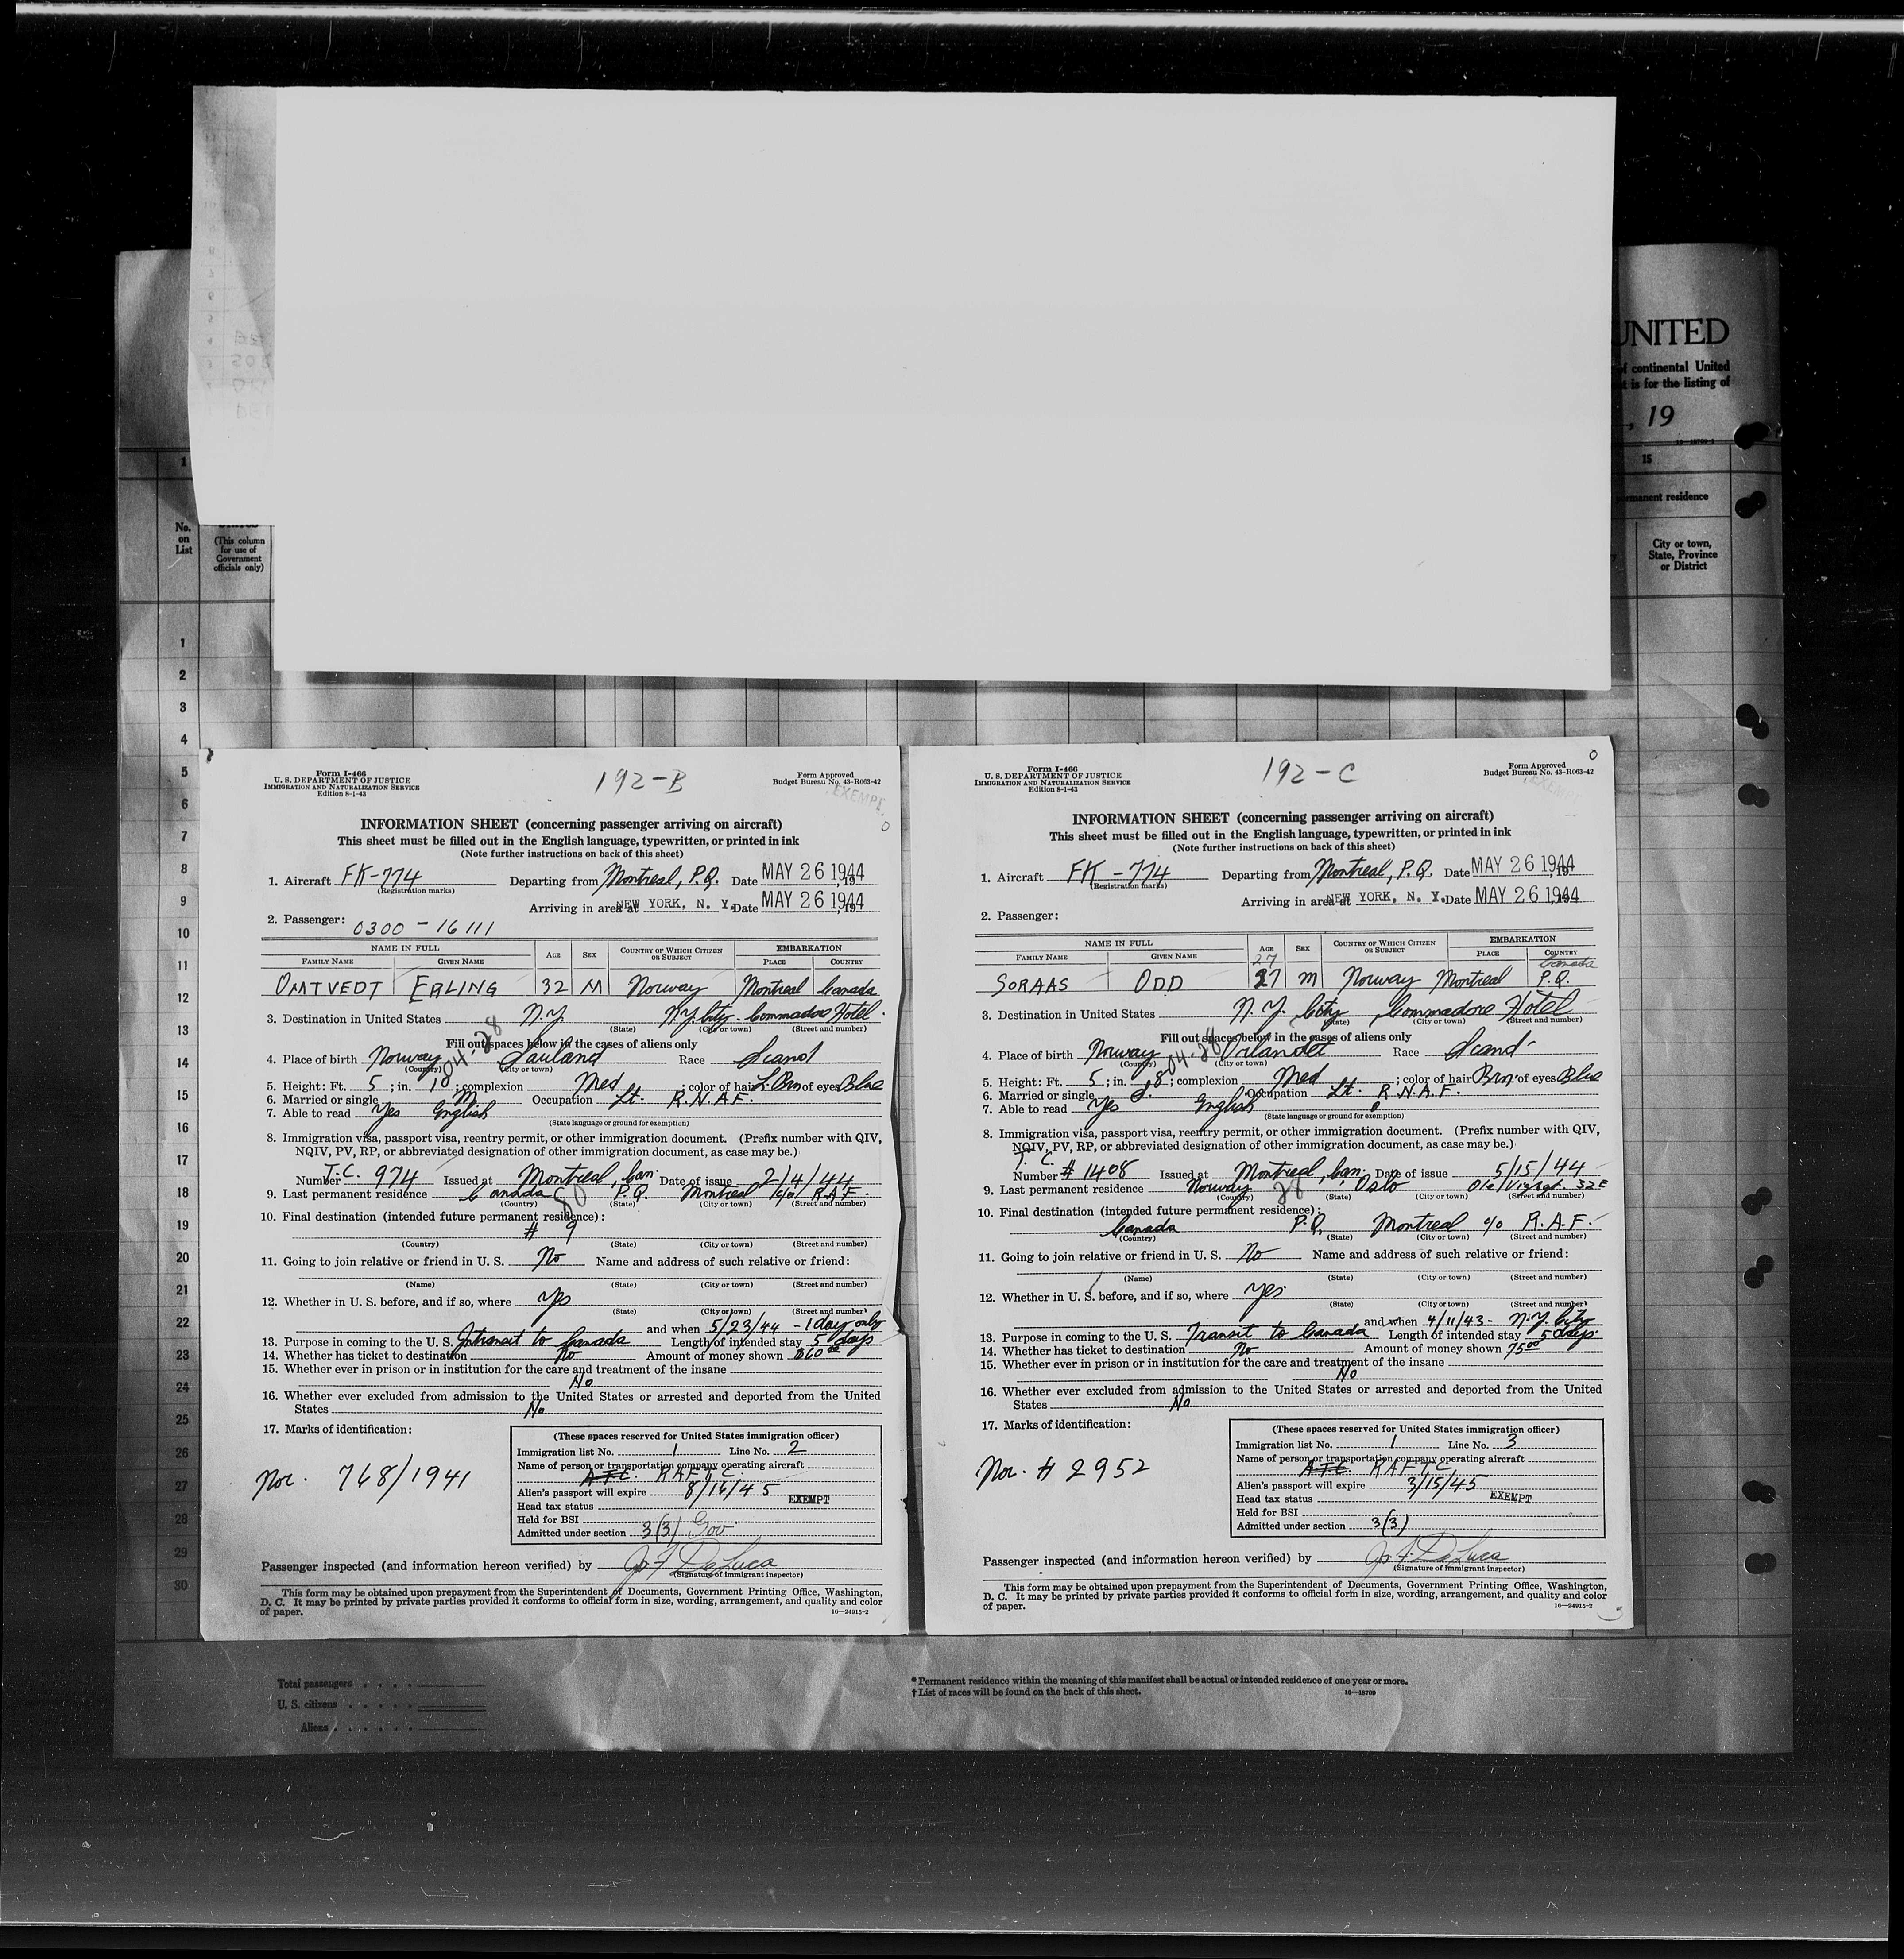 UNITED
of continental United
t is for the listing of
, 19
16—18709-1
1
15
permanent residence
No.
on
List
(This column
for use of
Government
officials only)
City or town,
State, Province
or District
1
2
3
4
5
6
7
8
9
10
11
12
13
14
15
16
17
18
19
20
21
22
23
24
25
26
27
28
29
30
Form I-466
U. S. DEPARTMENT OF JUSTICE
IMMIGRATION AND NATURALIZATION SERVICE
Edition 8-1-43
192-B
Form Approved
Budget Bureau No. 43-R063-42
EXEMPT
INFORMATION SHEET (concerning passenger arriving on aircraft)
This sheet must be filled out in the English language, typewritten, or printed in ink
(Note further instructions on back of this sheet)
1. Aircraft FK-774 Departing from Montreal, P.Q. Date MAY 26 1944, 19
(Registration marks)
Arriving in area at NEW YORK, N. Y. Date MAY 26 1944, 19
2. Passenger: 0300 - 16111
NAME IN FULL AGE SEX COUNTRY OF WHICH CITIZEN OR SUBJECT EMBARKATION
FAMILY NAME GIVEN NAME PLACE COUNTRY
OMTVEDT ERLING 32 M Norway Montreal Canada
3. Destination in United States N.Y. N.Y. City - Commadore Hotel.
(State) (City or town) (Street and number)
Fill out spaces below in the cases of aliens only
4. Place of birth Norway 804-28 Sauland Race Scand
(Country) (City or town)
5. Height: Ft. 5; in. 10; complexion Med; color of hair L. Brn of eyes Blue
6. Married or single M Occupation Lt. R.N.A.F.
7. Able to read Yes English
(State language or ground for exemption)
8. Immigration visa, passport visa, reentry permit, or other immigration document. (Prefix number with QIV,
NQIV, PV, RP, or abbreviated designation of other immigration document, as case may be.)
Number T.C. 974 Issued at Montreal, Can. Date of issue 2/4/44
9. Last permanent residence Canada 80 P.Q. Montreal c/o R.A.F.
(Country) (State) (City or town) (Street and number)
10. Final destination (intended future permanent residence):
# 9
(Country) (State) (City or town) (Street and number)
11. Going to join relative or friend in U. S. No Name and address of such relative or friend:
(Name) (State) (City or town) (Street and number)
12. Whether in U. S. before, and if so, where Yes
(State) (City or town) (Street and number)
and when 5/23/44 - 1 day only
13. Purpose in coming to the U. S. Intransit to Canada Length of intended stay 5 days
14. Whether has ticket to destination No Amount of money shown $60 00
15. Whether ever in prison or in institution for the care and treatment of the insane
No
16. Whether ever excluded from admission to the United States or arrested and deported from the United
States No
17. Marks of identification:
Nor. 768/1941
(These spaces reserved for United States immigration officer)
Immigration list No. 1 Line No. 2
Name of person or transportation company operating aircraft
A.T.C. RAFTC.
Alien's passport will expire 8/16/45
Head tax status EXEMPT
Held for BSI
Admitted under section 3(3) Gov.
Passenger inspected (and information hereon verified) by Jos F. DeLuca
(Signature of immigrant inspector)
This form may be obtained upon prepayment from the Superintendent of Documents, Government Printing Office, Washington,
D. C. It may be printed by private parties provided it conforms to official form in size, wording, arrangement, and quality and color
of paper.
16—24915-2
Form I-466
U. S. DEPARTMENT OF JUSTICE
IMMIGRATION AND NATURALIZATION SERVICE
Edition 8-1-43
192-C
Form Approved
Budget Bureau No. 43-R063-42
EXEMPT
INFORMATION SHEET (concerning passenger arriving on aircraft)
This sheet must be filled out in the English language, typewritten, or printed in ink
(Note further instructions on back of this sheet)
1. Aircraft FK-774 Departing from Montreal, P.Q. Date MAY 26 1944, 19
(Registration marks)
Arriving in area at NEW YORK, N. Y. Date MAY 26 1944, 19
2. Passenger:
NAME IN FULL AGE SEX COUNTRY OF WHICH CITIZEN OR SUBJECT EMBARKATION
FAMILY NAME GIVEN NAME PLACE COUNTRY
27 Canada
SORAAS ODD 27 M Norway Montreal P.Q.
3. Destination in United States N.Y. City Commadore Hotel
(State) (City or town) (Street and number)
Fill out spaces below in the cases of aliens only
4. Place of birth Norway 804-28 Orlandet Race Scand
(Country) (City or town)
5. Height: Ft. 5; in. 8; complexion Med; color of hair Brn of eyes Blue
6. Married or single S. Occupation Lt. R.N.A.F.
7. Able to read Yes English
(State language or ground for exemption)
8. Immigration visa, passport visa, reentry permit, or other immigration document. (Prefix number with QIV,
NQIV, PV, RP, or abbreviated designation of other immigration document, as case may be.)
T.C.
Number # 1408 Issued at Montreal, Can. Date of issue 5/15/44
9. Last permanent residence Norway 28 Oslo 32E
(Country) (State) (City or town) (Street and number)
10. Final destination (intended future permanent residence):
Canada P.Q. Montreal c/o R.A.F.
(Country) (State) (City or town) (Street and number)
11. Going to join relative or friend in U. S. No Name and address of such relative or friend:
(Name) (State) (City or town) (Street and number)
12. Whether in U. S. before, and if so, where Yes
(State) (City or town) (Street and number)
and when 4/11/43 - N.Y. City
13. Purpose in coming to the U. S. Transit to Canada Length of intended stay 5 days
14. Whether has ticket to destination No Amount of money shown 75 00
15. Whether ever in prison or in institution for the care and treatment of the insane
No
16. Whether ever excluded from admission to the United States or arrested and deported from the United
States No
17. Marks of identification:
Nor. # 2952
(These spaces reserved for United States immigration officer)
Immigration list No. 1 Line No. 3
Name of person or transportation company operating aircraft
A.T.C. RAFTC
Alien's passport will expire 3/15/45
Head tax status EXEMPT
Held for BSI
Admitted under section 3(3)
Passenger inspected (and information hereon verified) by Jos F. DeLuca
(Signature of immigrant inspector)
This form may be obtained upon prepayment from the Superintendent of Documents, Government Printing Office, Washington,
D. C. It may be printed by private parties provided it conforms to official form in size, wording, arrangement, and quality and color
of paper.
16—24915-2
Total passengers
U. S. citizens
Aliens
* Permanent residence within the meaning of this manifest shall be actual or intended residence of one year or more.
† List of races will be found on the back of this sheet.
16—18709